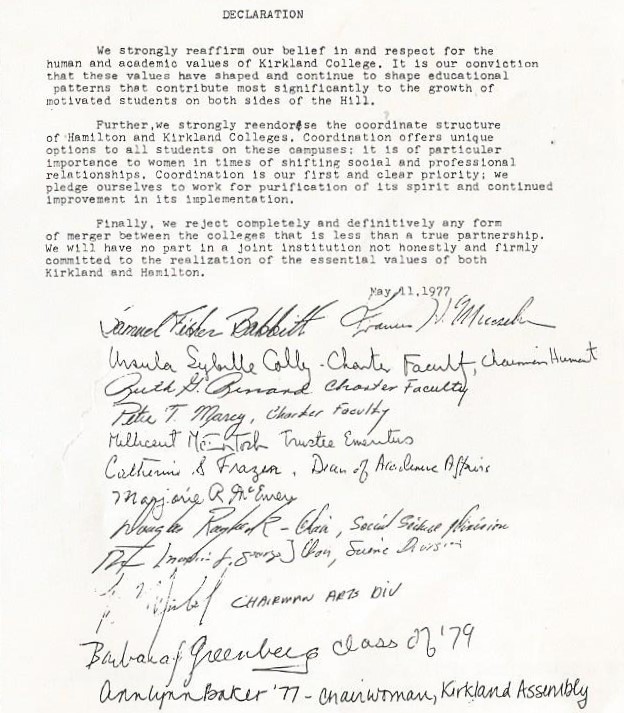 DECLARATION
We strongly reaffirm our belief in and respect for the
human and academic values of Kirkland College. It is our conviction
that these values have shaped and continue to shape educational
patterns that contribute most significantly to the growth of
motivated students on both sides of the Hill.
Further,we strongly reendorse the coordinate structure
of Hamilton and Kirkland Colleges. Coordination offers unique
options to all students on these campuses; it is of particular
importance to women in times of shifting social and professional
relationships. Coordination is our first and clear priority; we
pledge ourselves to work for purification of its spirit and continued
improvement in its implementation.
Finally, we reject completely and definitively any form
of merger between the colleges that is less than a true partnership.
We will have no part in a joint institution not honestly and firmly
committed to the realization of the essential values of both
Kirkland and Hamilton.
May 11,1977
Samuel Fisher Babbitt
Ursula Sybille Colby - Charter Faculty, Chairman
Ruth G. Charter Faculty
Peter T. Marcy, Charter Faculty
Millicent McIntosh Trustee Emeritus
Catherine S Frazer, Dean of Academic Affairs
Marjorie R. McEwen
Douglas - Chair, Social Science Division
Chair, Science Division
CHAIRMAN ARTS DIV
Barbara J Greenberg class of '79
Ann Lynn Baker '77 - Chairwoman, Kirkland Assembly